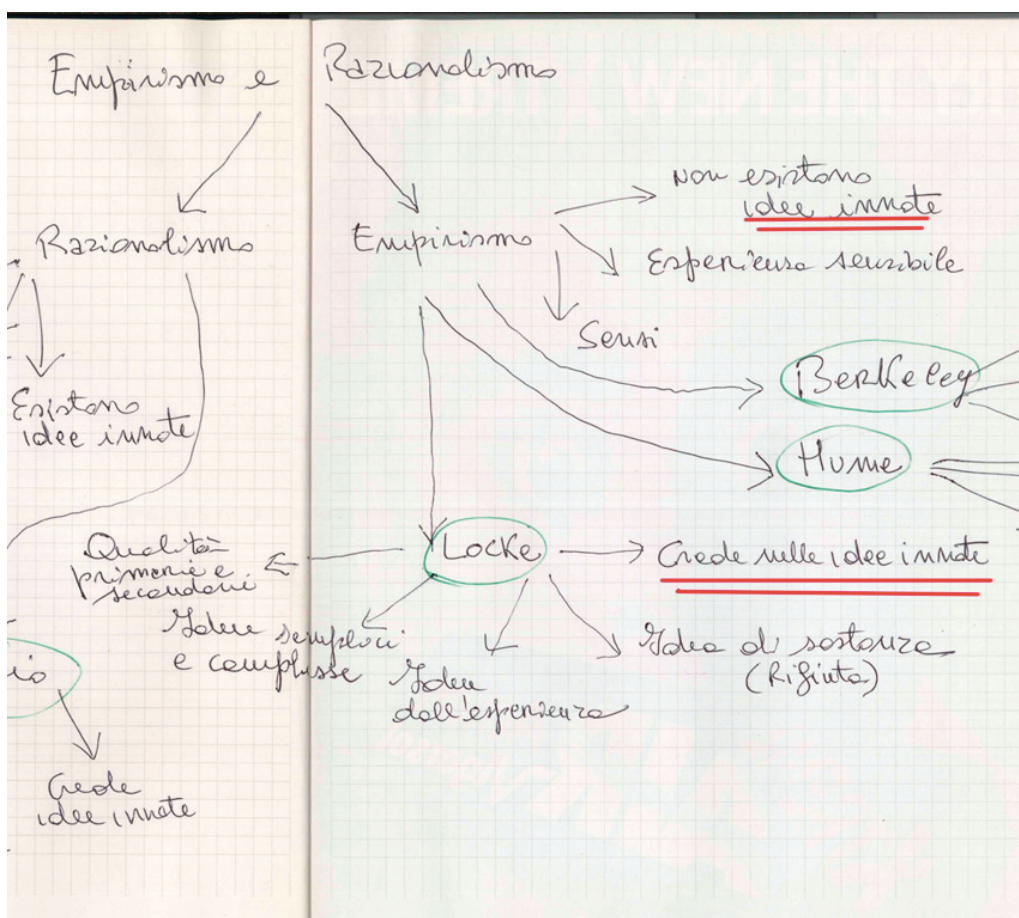 Empirismo e Razionalismo
Razionalismo
Esistono
idee innate
Crede
idee innate
Empirismo
Non esistono
idee innate
Esperienza sensibile
Sensi
Berkeley
Hume
Locke
Crede nelle idee innate
Qualità
primarie e
secondarie
Idee semplici
e complesse
Idee
dall'esperienza
Idea di sostanza
(Rifiuta)